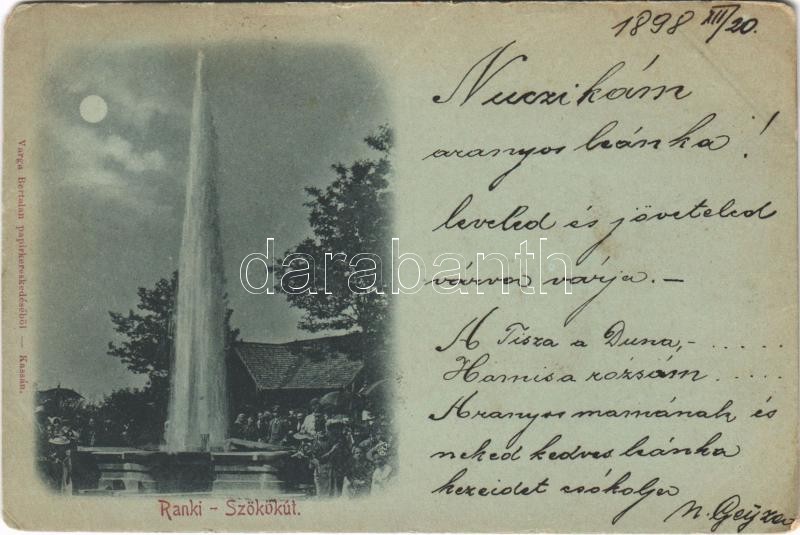 1898 XII/20.
Nuczikám
aranyos leánka!
leveled és jöveteled
várva várja. —
A Tisza a Duna, – . . . . .
Hamis a rózsám . . . . .
Aranyos mamának és
neked kedves leánka
kezeidet csókolja
N. Geÿza
Varga Bertalan papirkereskedéséből — Kassán.
darabanth
Ranki - Szökőkút.